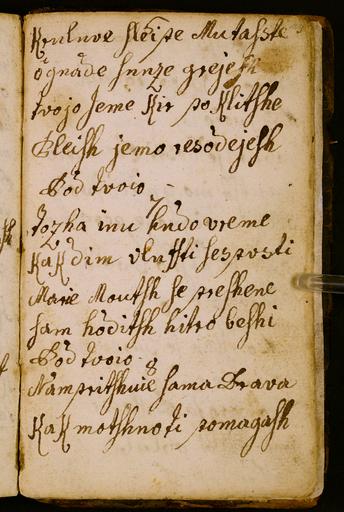 Kruluve sleipe Mutasste
ognade sunze grejesh
tvojo Seme Kir po Klitshe
Gleish jemo resodejesh
Pod tvoio
7
Tozha inu hudo vreme
KaK dim vluffti se spusti
Marie Moutsh se preshene
sam hoditsh hitro beshi
Pod tvoio
8
Nam pritshuie sama Drava
KaK motshnoti pomagash